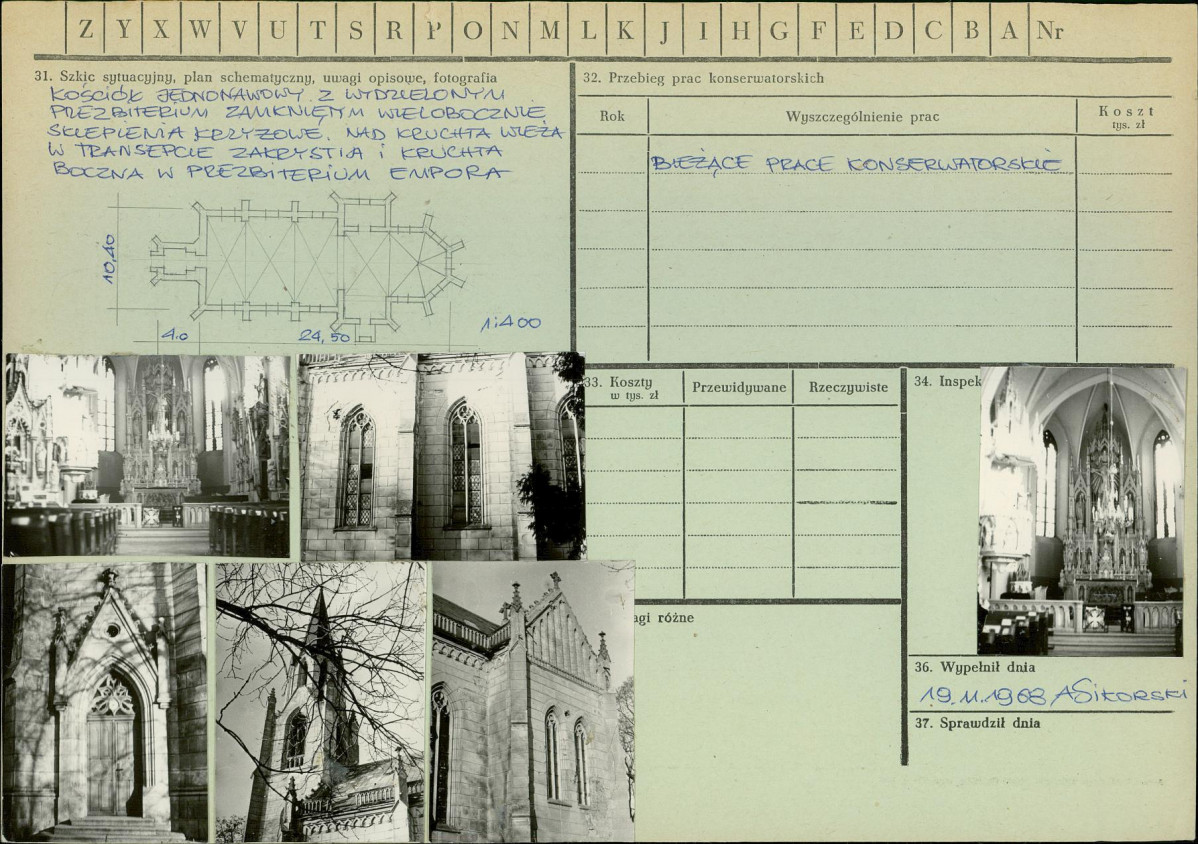 Z Y X W V U T S R P O N M L K J I H G F E D C B A Nr
31. Szkic sytuacyjny, plan schematyczny, uwagi opisowe, fotografia
KOŚCIÓŁ JEDNONAWOWY Z WYDZIELONYM
PREZBITERIUM ZAMKNIĘTYM WIELOBOCZNIE
SKLEPIENIA KRZYŻOWE. NAD KRUCHTA WIEŻA
W TRANSEPCIE ZAKRYSTIA i KRUCHTA
BOCZNA W PREZBITERIUM EMPORA
10,40
4.0
24,50
1:400
32. Przebieg prac konserwatorskich
Rok
Wyszczególnienie prac
Koszt
tys. zł
BIEŻĄCE PRACE KONSERWATORSKIE
33. Koszty
w tys. zł
Przewidywane
Rzeczywiste
34. Inspek
agi różne
36. Wypełnił dnia
19.11.1968 ASIKORSKI
37. Sprawdził dnia